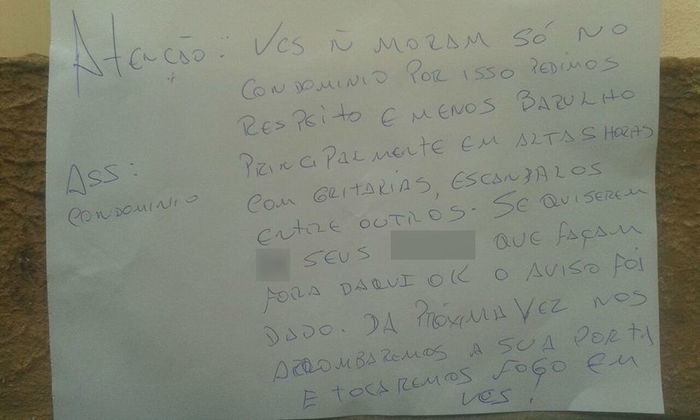 Atenção: VCS Ñ MORAM SÓ NO
CONDOMINIO POR ISSO PEDIMOS
RESPEITO E MENOS BARULHO
PRINCIPALMENTE EM ALTAS HORAS
COM GRITARIAS, ESCANDALOS
ENTRE OUTROS. SE QUISEREM
SEUS QUE FAÇAM
FORA DAQUI OK O AVISO FOI
DADO. DA PRÓXIMA VEZ NOS
ARROMBAREMOS A SUA PORTA
E TOCAREMOS FOGO EM
VCS!
ASS:
CONDOMINIO